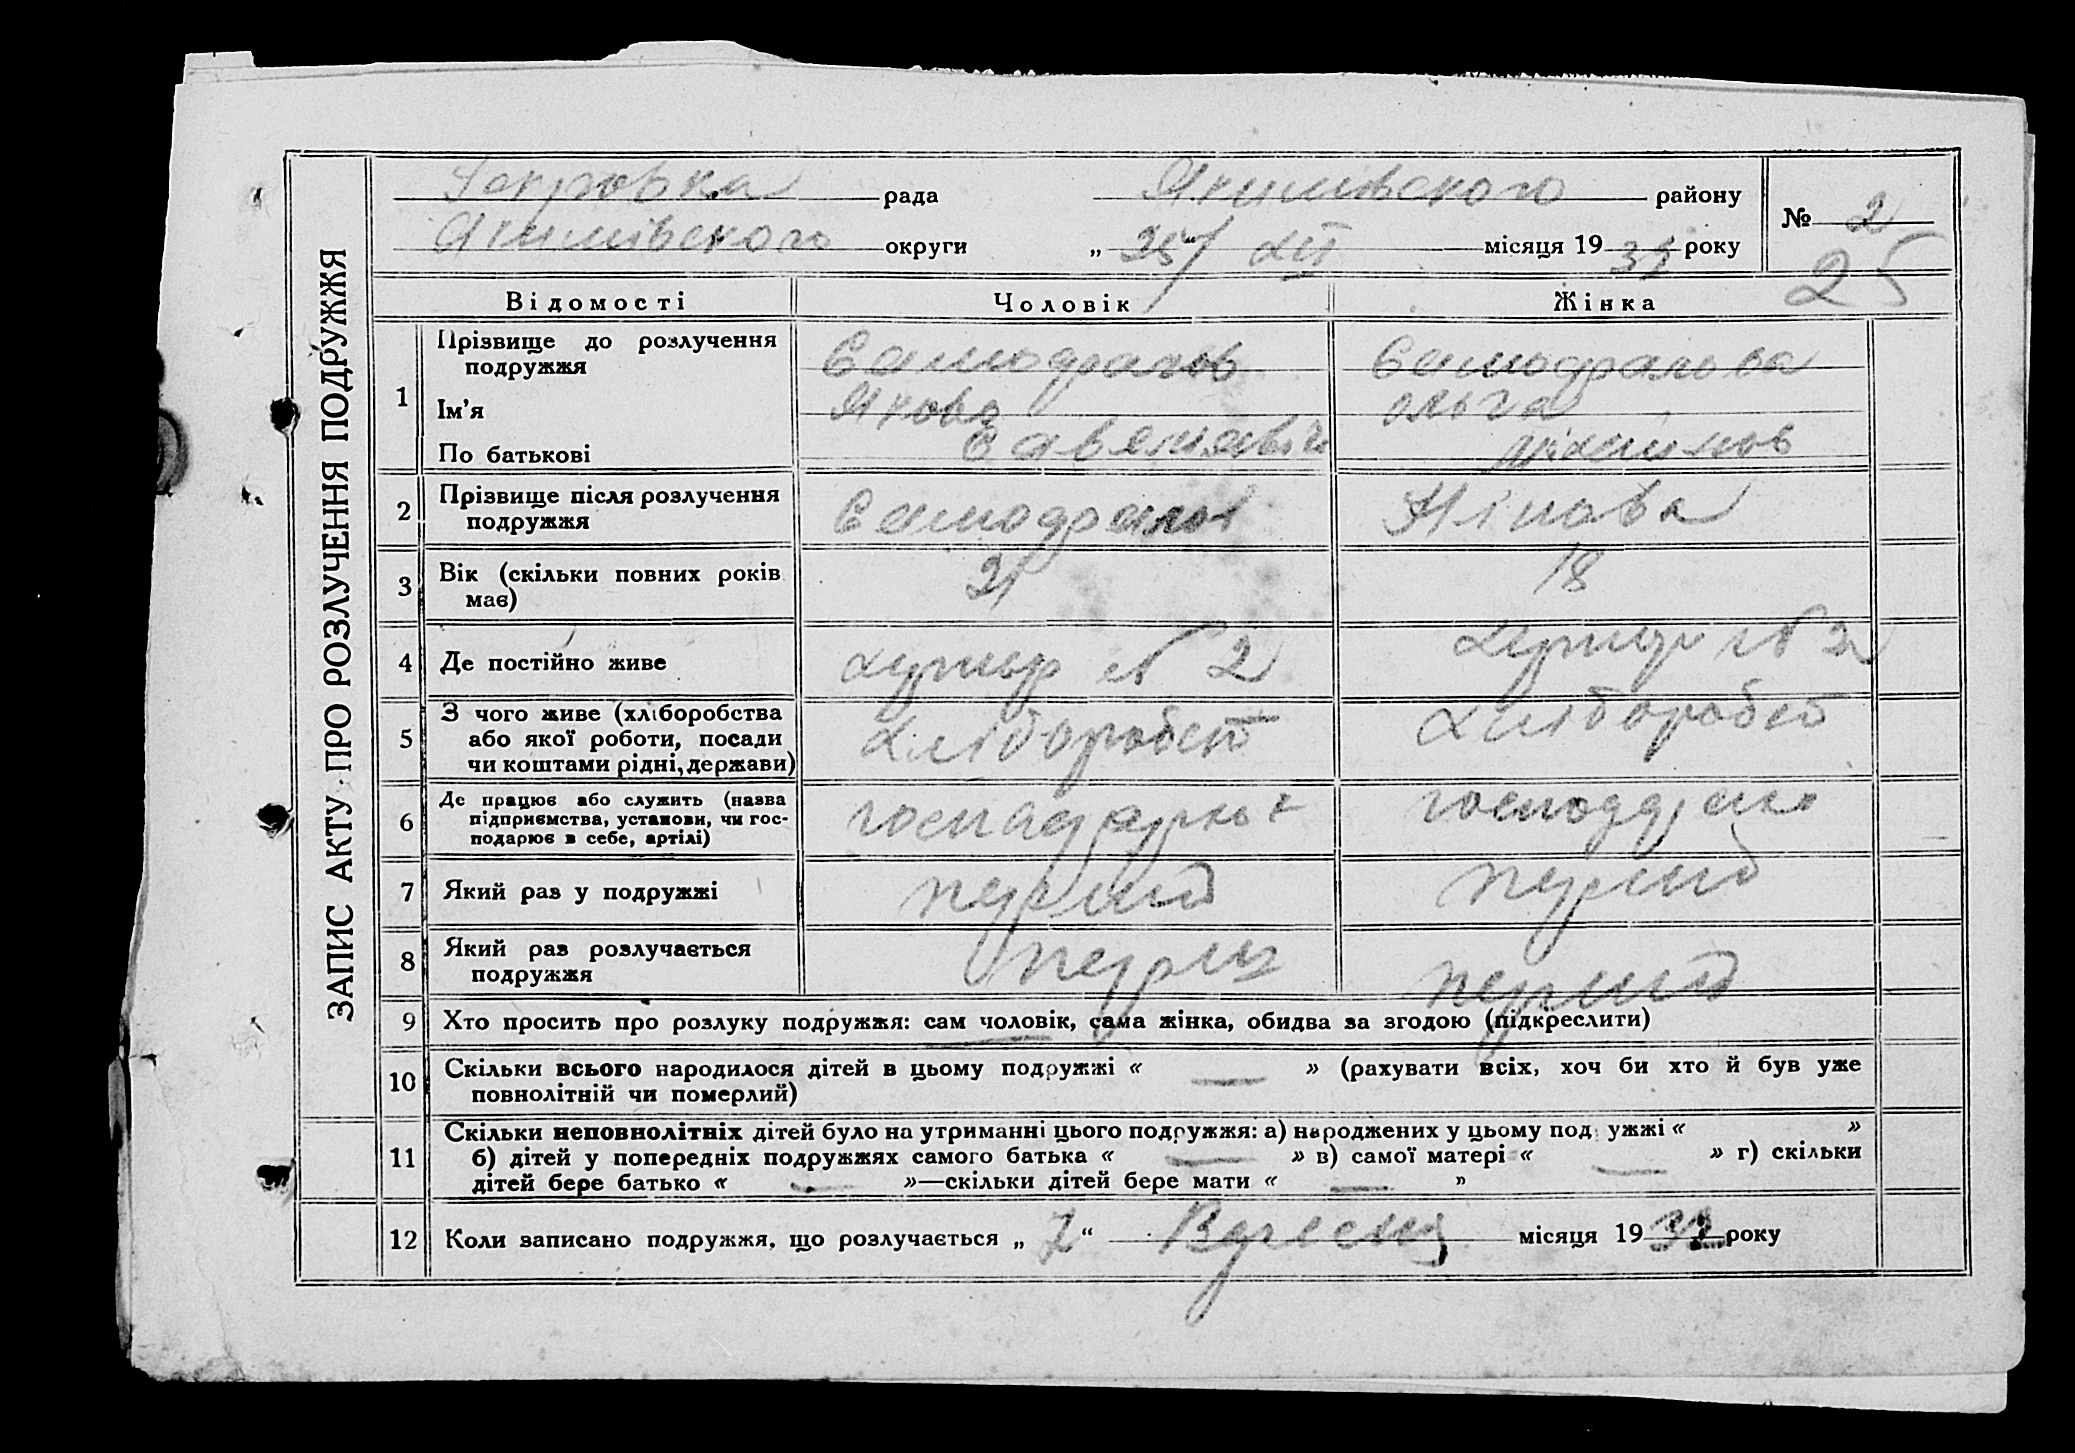 ЗАПИС АКТУ ПРО РОЗЛУЧЕННЯ ПОДРУЖЖЯ
рада Якимівського району
Якимівського округи „ 25 " XII місяця 19 року
№ 2
25
Відомості Чоловік Жінка
1 Прізвище до розлучення подружжя Самодралов Самодралова
Ім'я Яков Ольга
По батькові
2 Прізвище після розлучення подружжя Самодралов
3 Вік (скільки повних років має) 21 18
4 Де постійно живе хутір № 2 хутір № 2
5 З чого живе (хліборобства або якої роботи, посади чи коштами рідні, держави) Хліборобст Хліборобст
6 Де працює або служить (назва підприємства, установи, чи господарює в себе, артілі)
7 Який раз у подружжі перший перший
8 Який раз розлучається подружжя перш перший
9 Хто просить про розлуку подружжя: сам чоловік, сама жінка, обидва за згодою (підкреслити)
10 Скільки всього народилося дітей в цьому подружжі « — » (рахувати всіх, хоч би хто й був уже
повнолітній чи померлий)
11 Скільки неповнолітніх дітей було на утриманні цього подружжя: а) народжених у цьому подружжі « »
б) дітей у попередніх подружжях самого батька « — » в) самої матері « — » г) скільки
дітей бере батько « — »—скільки дітей бере мати « — »
12 Коли записано подружжя, що розлучається „ 7 " Вересня місяця 19 року